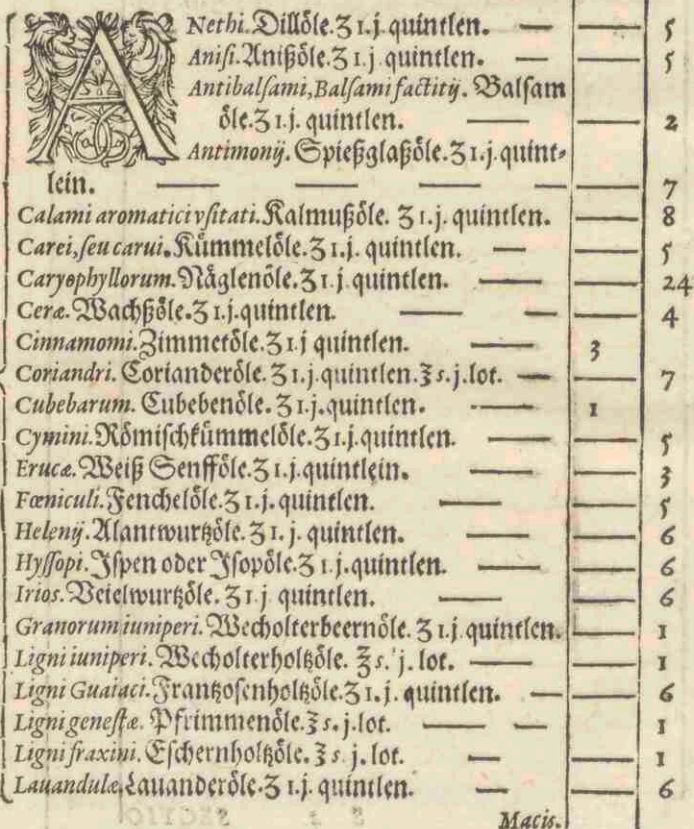 ANethi. Dillöle. ʒ 1. j. quintlen. — — 5
Anisi. Anißöle. ʒ 1. j. quintlen. — — 5
Antibalsami, Balsami factitij. Balsam
öle. ʒ 1. j. quintlen. — — 2
Antimonij. Spießglaßöle. ʒ 1. j. quint⸗
lein. — — — — — 7
Calami aromatici vsitati. Kalmußöle. ʒ 1. j. quintlen. — 8
Carei, seu carui. Kümmelöle. ʒ 1. j. quintlen. — — 5
Caryophyllorum. Näglenöle. ʒ 1. j. quintlen. — — 24
Ceræ. Wachßöle. ʒ 1. j. quintlen. — — — 4
Cinnamomi. Zimmetöle. ʒ 1. j quintlen. — 3
Coriandri. Corianderöle. ʒ 1. j. quintlen. ℥ s. j. lot. — — 7
Cubebarum. Cubebenöle. ʒ 1. j. quintlen. — 1
Cymini. Römischkümmelöle. ʒ 1. j. quintlen. — — 5
Erucæ. Weiß Senfföle. ʒ 1. j. quintlein. — — 3
Fœniculi. Fenchelöle. ʒ 1. j. quintlen. — — 5
Helenij. Alantwurtzöle. ʒ 1. j. quintlen. — — 6
Hyssopi. Jspen oder Jsopöle. ʒ 1. j. quintlen. — — 6
Irios. Veielwurtzöle. ʒ 1. j quintlen. — — 6
Granorum iuniperi. Wecholterbeernöle. ʒ 1. j quintlen. — 1
Ligni iuniperi. Wecholterholtzöle. ℥ s. j. lot. — — 1
Ligni Guaiaci. Frantzosenholtzöle. ʒ 1. j. quintlen. — — 6
Ligni genestæ. Pfrimmenöle. ℥ s. j. lot. — — — 1
Ligni fraxini. Eschernholtzöle. ℥ s. j. lot. — — 1
Lauandulæ. Lauanderöle. ʒ 1. j. quintlen. — — 6
Macis.